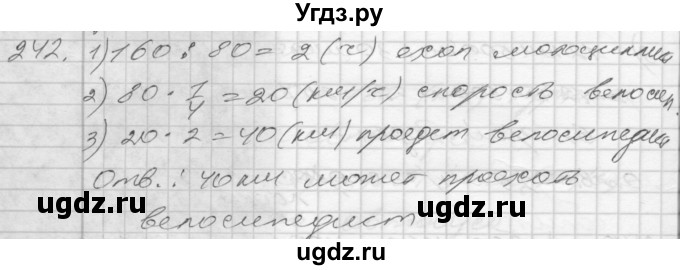 Угдз.ру
242. 1) 160 : 80 = 2 (ч) ехал мотоциклист
2) 80 · 1/4 = 20 (км/ч) скорость велосип.
3) 20 · 2 = 40 (км) проедет велосипедист
Отв.: 40 км может проехать
велосипедист
ugdz.ru ugdz.ru
ugdz.ru